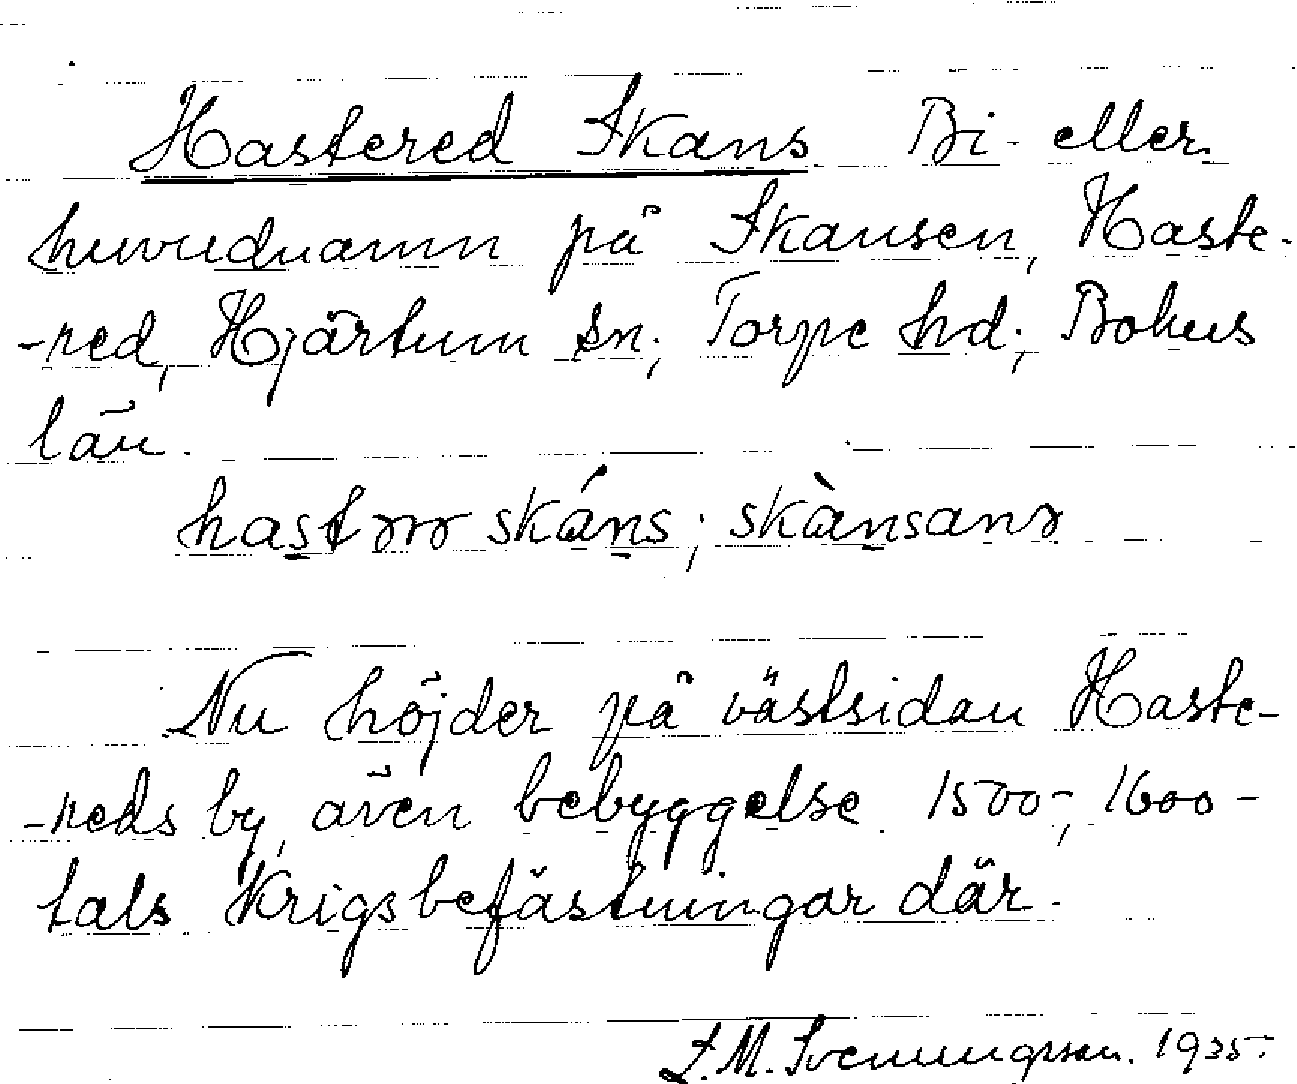 Hastered Skans. Bi- eller
huvudnamn på Skansen, Haste-
-red, Hjärtum sn; Torpe hd; Bohus
län.
skáns; skànsanɤ
Nu höjder på västsidan Haste-
-reds by, även bebyggelse. 1500-, 1600-
tals Krigsbefästningar där.
J. M. Svenningsson. 1935.